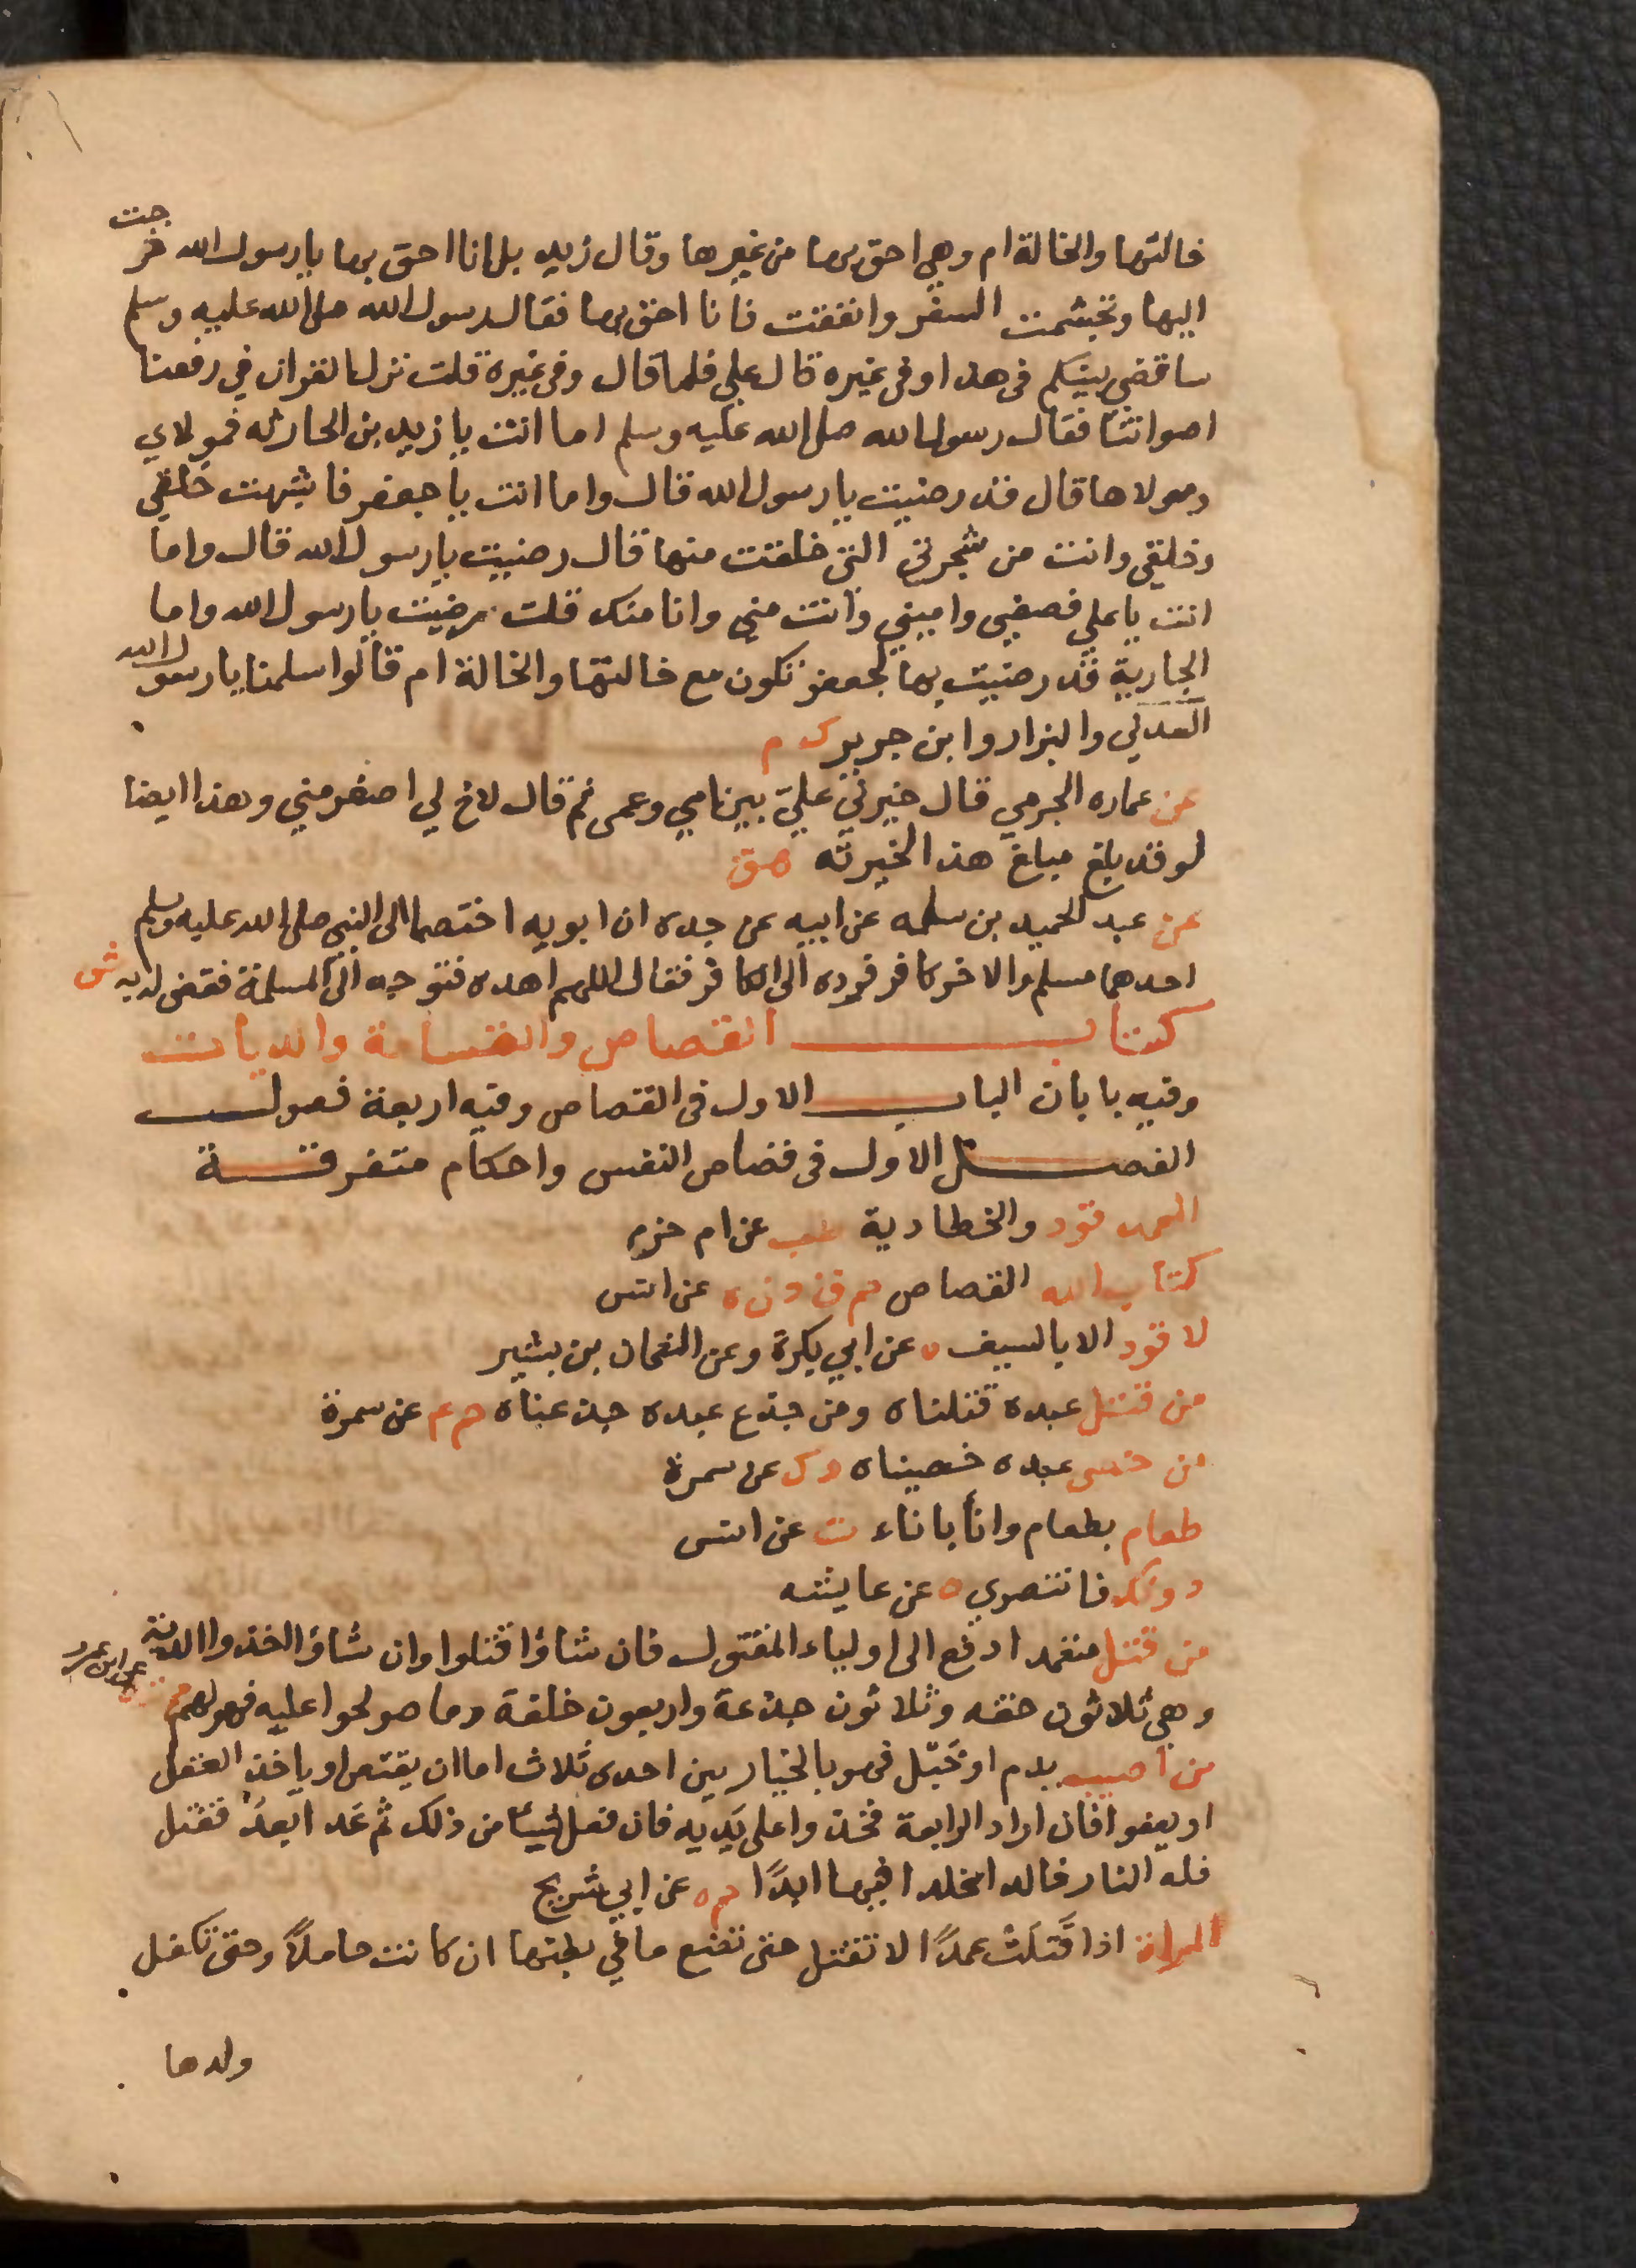 خالتها والخالة ام وهي احق بها من غيرها وقال زيد بل انا احق بها يارسول الله خرجت
اليها وتجشمت السفر وانفقت فانا احق بها فقال رسول الله صلى الله عليه وسلم
ساقضي بينكم في هذا وفي غيره قال علي فلما قال وفي غيره قلت نزل القران في رفعنا
اصواتنا فقال رسول الله صلى الله عليه وسلم اما انت يا زيد بن الحارثه فمولاي
ومولاها قال قد رضيت يا رسول الله قال واما انت يا جعفر فاشبهت خلقي
وخلقي وانت من شجرتي التي خلقت منها قال رضيت يا رسول الله قال واما
انت يا علي فصفيي واميني وانت مني وانا منك قلت رضيت يا رسول الله واما
الجارية فقد رضيت بها لجعفر تكون مع خالتها والخالة ام قالوا سلمنا يا رسول الله
العدني والبزار وابن جرير ك م
عن عماره الجرمي قال خيرني علي بين امي وعمي ثم قال لاخ لي اصغر مني وهذا ايضا
لو قد بلغ مبلغ هذا لخيرته هق
عن عبد الحميد بن سلمه عن ابيه عن جده ان ابويه اختصما الى النبي صلى الله عليه وسلم
احدهما مسلم والاخر كافر فوده الى الكافر فقال اللهم اهده فتوجه الى المسلمة فقضى له به ش
كتاب القصاص والقسامة والديات
وفيه بابان الباب الاول في القصاص وفيه اربعة فصول
الفصل الاول في قصاص النفس واحكام متفرقة
العمد قود والخطا دية طب عن ام حزم
كتاب الله القصاص حم ق د ن ه عن انس
لا قود الا بالسيف ه عن ابي بكرة وعن النعمان بن بشير
من قتل عبده قتلناه ومن جدع عبده جدعناه حم عم عن سمرة
من خصى عبده خصيناه د ك عن سمرة
طعام بطعام وانأ باناء ت عن انس
دونك فانتصري ه عن عايشه
من قتل متعمدا دفع الى اولياء المقتول فان شاؤا قتلوا وان شاؤا اخذوا الدية
وهي ثلاثون حقه وثلاثون جذعة واربعون خلفة وما صولحوا عليه فهو لهم حم ت ه عن ابن عمرو
من اصيب بدم او خَبْل فهو بالخيار بين احدى ثلاث اما ان يقتص او ياخذ العقل
او يعفوا فان اراد الرابعة فخذوا على يَديه فان فعل شيئا من ذلك ثم عَدا بَعدُ فقتل
فله النار خالدا مخلدا فيها ابدًا حم ه عن ابي شريح
المراة اذا قَتَلَت عمدًا لا تقتل حتى تضع ما في بطنها ان كانت حاملاً وحتى تكفل
ولدها